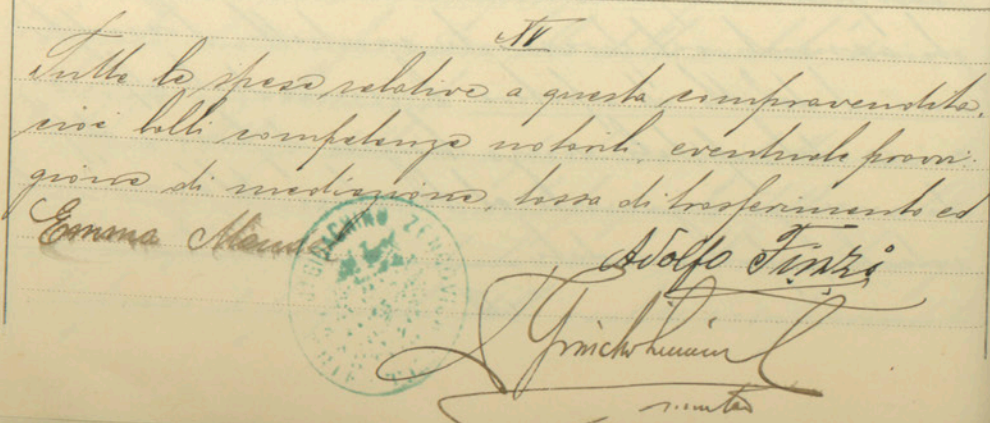 IV
Tutte le spese relative a questa compravendita,
cioè bolli competenze notarili, eventuale provvi-
gione di mediazione, tassa di trasferimento ed
Emma
Adolfo Finzi